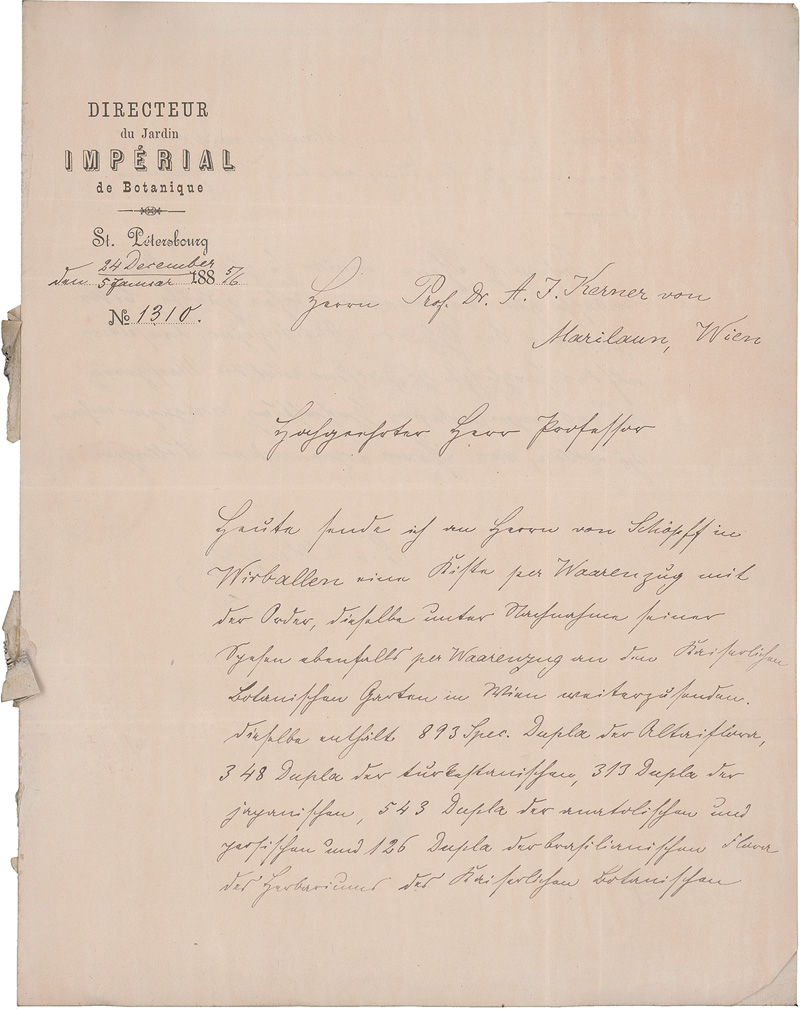 DIRECTEUR
du Jardin
IMPÉRIAL
de Botanique
St. Pétersbourg
den 24 December / 5 Januar 1885/6
No 1310.
Herrn Prof. Dr. A. J. Kerner von
Marilaun, Wien
Hochgeehrter Herr Professor
Heute sende ich an Herrn von Schöpff in
Wirballen eine Kiste per Waarenzug mit
der Order, dieselbe unter Nachnahme seiner
Spesen ebenfalls per Waarenzug an den Kaiserlichen
Botanischen Garten in Wien weiterzusenden.
Dieselbe enthält 893 Spec. Dupla der Altaiflora,
348 Dupla der turkestanischen, 313 Dupla der
japanischen, 543 Dupla der anatolischen und
persischen und 126 Dupla der brasilianischen Flora
des Herbariums des Kaiserlichen Botanischen